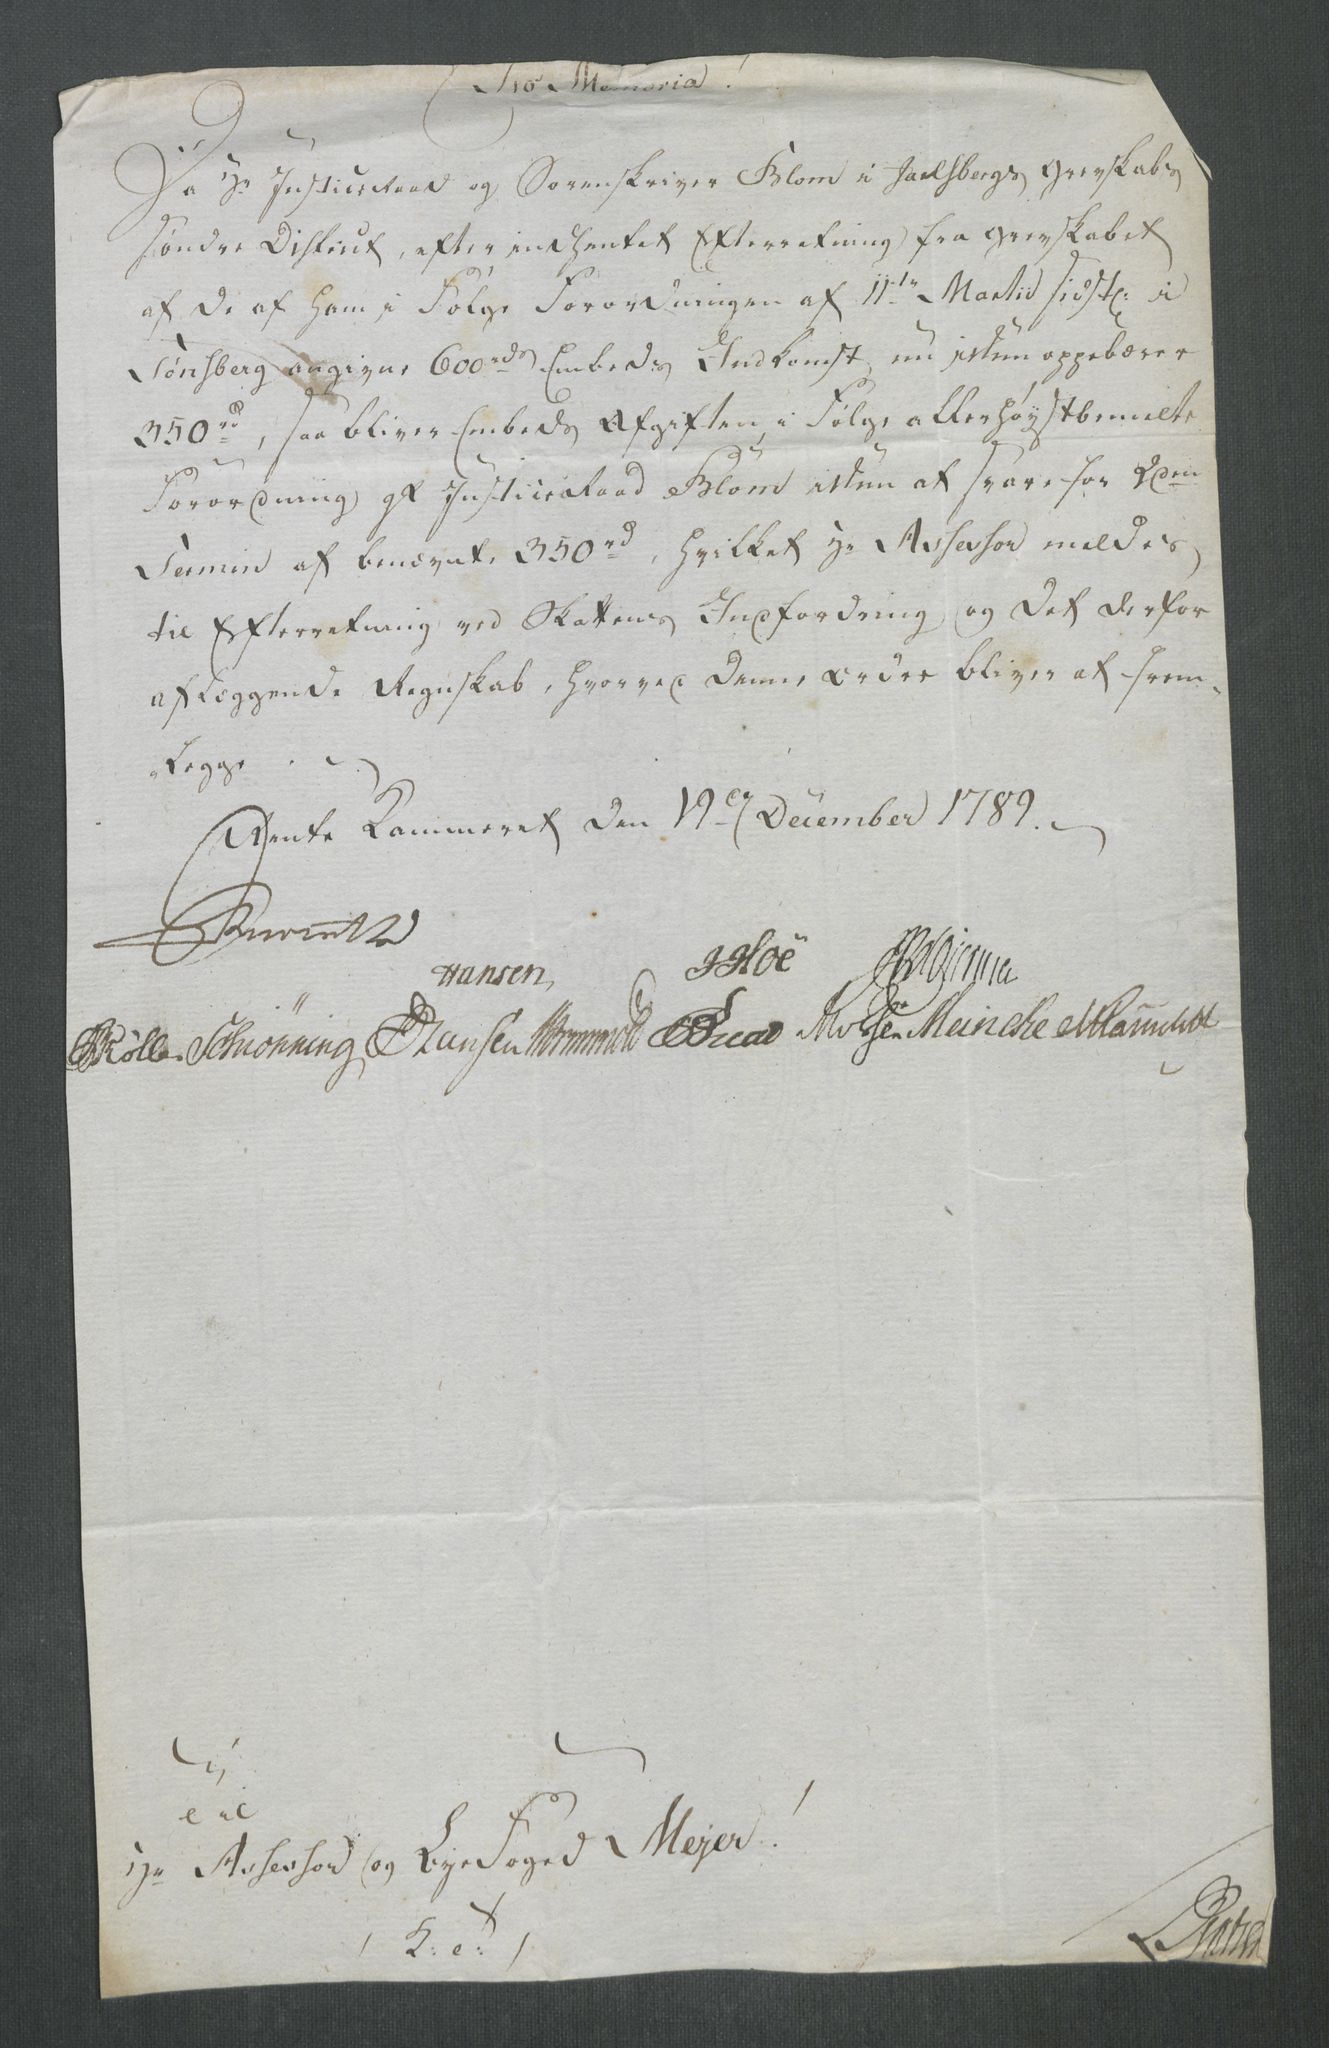 Pro Memoria!
Da Hr Justiceraad og Sorenskriver Blom i Jarlsbergs Grevskabs
søndre District, efter indhentet Efterretning fra Grevskabet
af de af ham i Følge Forordningen af 11te Martii sidstl: i
Tønsberg angivne 600rds Embeds Indkomst, nu ikkun oppebærer
350rd, saa bliver Embeds Afgiften, i Følge allerhøystbemelte
Forordning, Justiceraad Blom ikkun at svare for
Termin af benævnte 350rd, hvilket Hr Assessor meldes
til Efterretning ved Skattens Indfordring og det derfor
aflæggende Regnskab, hvorved denne Ordre bliver at frem-
-legge.
Rente Kammeret den 19de December 1789.
Hansen JHoë
Møller Schiönning Hansen Wormskiold Meincke
Til
Hr Assessor og Byefoged Mejer!